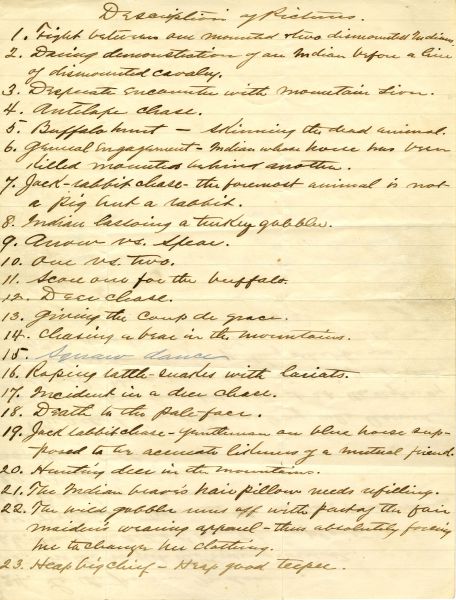 Description of Pictures.
1. Fight between one mounted & two dismounted Indians.
2. Daring demonstration of an Indian before a line
of dismounted cavalry.
3. Desperate encounter with mountain lion.
4. Antilope chase.
5. Buffalo hunt — skinning the dead animal.
6. General engagement - Indian whose horse has been
killed mounted behind another.
7. Jack-rabbit chase - the foremost animal is not
a pig but a rabbit.
8. Indian lassoing a turkey gobbler.
9. Arrow vs. Spear.
10. One vs. two.
11. Score one for the buffalo.
12. Deer chase.
13. Giving the coup de grace.
14. Chasing a bear in the mountains.
15. Squaw dance
16. Roping rattle-snakes with lariats.
17. Incident in a deer chase.
18. Death to the pale-face.
19. Jack rabbit chase - gentleman on blue horse sup-
posed to be accurate likeness of a mutual friend.
20. Hunting deer in the mountains.
21. The Indian brave's hair pillow needs refilling.
22. The wild gobbler runs off with part of the fair
maiden's wearing apparel - thus absolutely forcing
her to change her clothing.
23. Heap big chief - Heap good teepee.